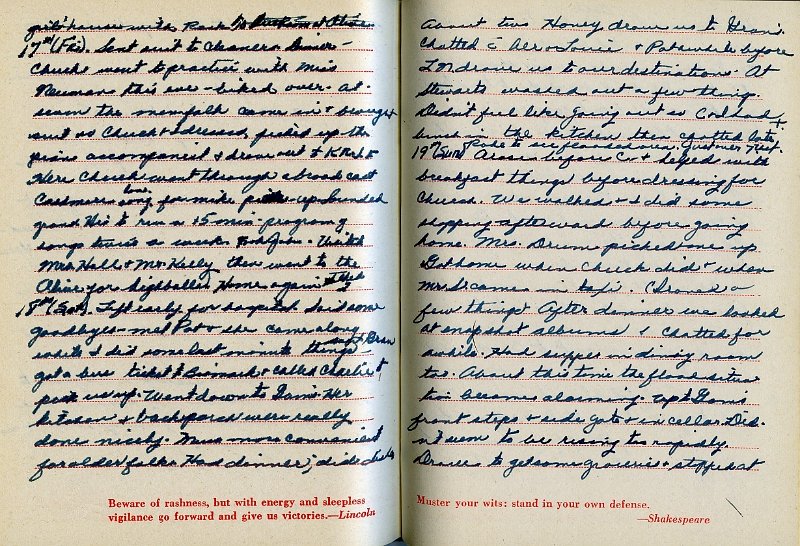 girls house with
17th (Fri). Sent suit to cleaners. Dinner -
Chuck went to practice with Miss
Neuman this eve - biked over. At
seven the menfolk came in & brought
suit so Chuck & I dressed, picked up the
piano accompanist & drove out to
Here Chuck went through a broadcast
Cashmere love song for mike - up - sounded
grand. He's to run a 15 min program of
songs twice a week for Visited
Mrs. Hall & Mr. Kelly then went to the
for highballs. Home again
18th (Sat). Left early for hospital. Said some
goodbyes - met Pat & she came along
while I did some last minute things
got a bus ticket to Bismarck & called Charlie to
pick us up. Went down to Gram's. Her
kitchen & back porch were really
done nicely. Much more convenient
for older folks. Had dinner, did dishes
About two Honey drove us to
Chatted & Pat awhile before
drove us to our destinations. At
Stewarts washed out a few things.
Didn't feel like going out so Cal had
lunch in the kitchen then chatted late
19th (Sun) Arose before C & helped with
breakfast things before dressing for
Church. We walked & I did some
shopping afterward before going
home. Mrs. Drum picked me up
Got home when Chuck did & when
Mr. S. came in taxi. Cleaned a
few things. After dinner we looked
at snapshot albums & chatted for
awhile. Had supper in dining room
too. About this time the flood situa-
tion becomes alarming. Up to Gram's
front steps & side gate & in cellar. Did-
n't seem to be rising too rapidly.
Drove to get some groceries & stopped at
Beware of rashness, but with energy and sleepless
vigilance go forward and give us victories.—Lincoln
Muster your wits: stand in your own defense.
—Shakespeare